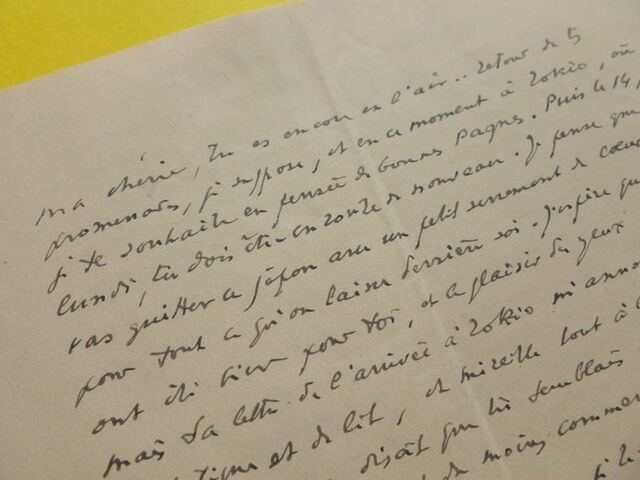 ma chérie, Tu es encore en l'air.. retour de ts
promenades, je suppose, et en ce moment à Tokio, où
je te souhaite en pensée de bonnes Pâques. Puis le 14,
lundi, tu dois être en route de nouveau. Je pense que
vas quitter ce Japon avec un petit serrement de coeur
pour tout ce qu'on laisse derrière soi. J'espère qu
ont été bien pour toi, et le plaisir des yeux
mais ta lettre de l'arrivée à Tokio m'a
et de lit, et Mireille tout à
disait que tu semblais
moins